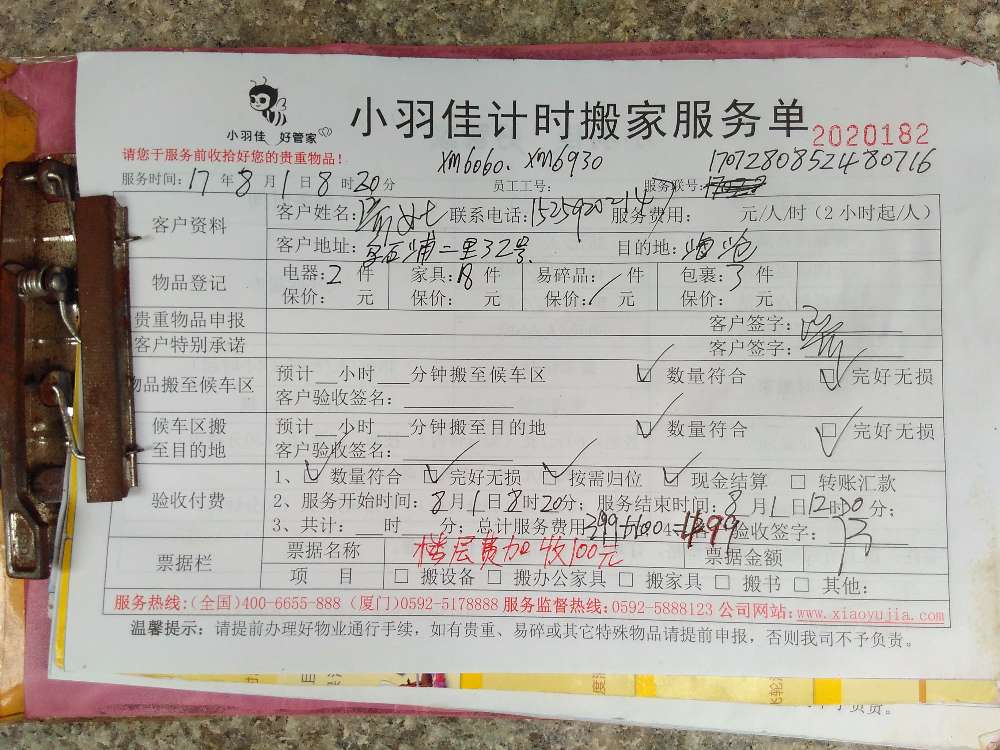 小羽佳 好管家
小羽佳计时搬家服务单
2020182
请您于服务前收拾好您的贵重物品!
XM6060. XM6930
服务时间:17年8月1日8时20分 员工工号: 服务联号: 170728085248 0716
客户资料 客户姓名: 联系电话: 服务费用: 元/人/时(2小时起/人)
客户地址: 二里32号. 目的地:
物品登记 电器:2件 家具:18件 易碎品: 件 包裹:3件
保价: 元 保价: 元 保价: 元 保价: 元
贵重物品申报 客户签字:
客户特别承诺 客户签字:
物品搬至候车区 预计__小时___分钟搬至候车区 ☑ 数量符合 ☑ 完好无损
客户验收签名:
候车区搬至目的地 预计__小时___分钟搬至目的地 ☑ 数量符合 ☑ 完好无损
客户验收签名:
验收付费 1、☑ 数量符合 ☑ 完好无损 ☑ 按需归位 ☑ 现金结算 □ 转账汇款
2、服务开始时间:8月1日8时20分; 服务结束时间:8月1日12时00分;
3、共计: 时 分; 总计服务费用399+100=499 验收签字:
票据栏 票据名称 楼层费加收100元 票据金额
项 目 □ 搬设备 □ 搬办公家具 □ 搬家具 □ 搬书 □ 其他:
服务热线:(全国)400-6655-888 (厦门)0592-5178888 服务监督热线:0592-5888123 公司网站:www.xiaoyujia.com
温馨提示: 请提前办理好物业通行手续，如有贵重、易碎或其它特殊物品请提前申报，否则我司不予负责。